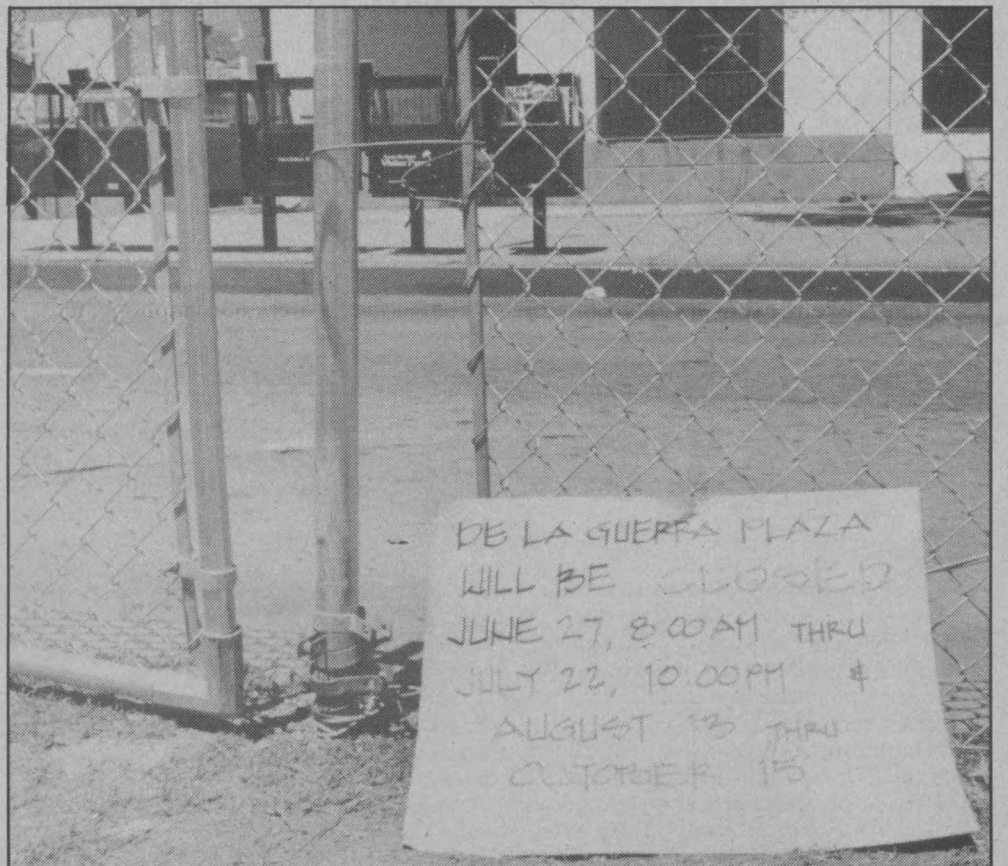 DE LA GUERRA PLAZA
WILL BE CLOSED
JUNE 27, 8:00AM THRU
JULY 22, 10:00PM &
AUGUST 13 THRU
OCTOBER 15